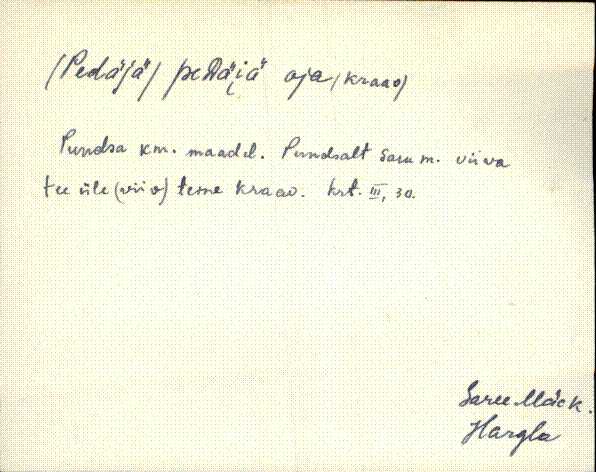 (Pedäjä) peᴅäi̯ä oja (kraav)
Pundsa km. maadel. Pundsalt Saru m. viiva
tee üle (viiv) teine kraav. krt. III, 30.
Saru Mäek.
Hargla